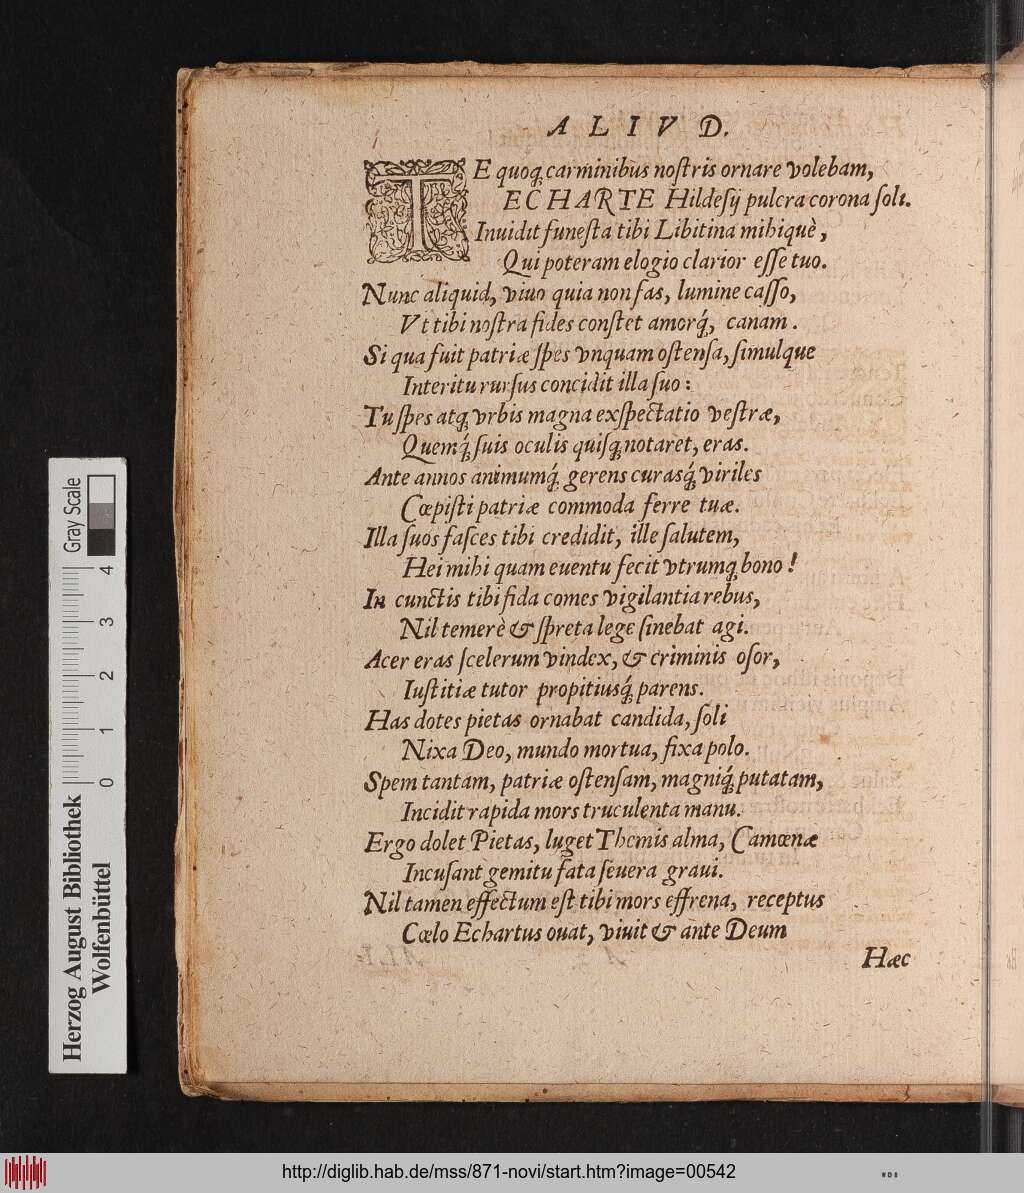 ALIVD.
TE quoq́ carminibus noſtris ornare volebam,
ECHARTE Hildeſij pulcra corona ſoli.
Inuidit funeſta tibi Libitina mihiquè,
Qui poteram elogio clarior eſſe tuo.
Nunc aliquid, viuo quia non fas, lumine caſſo,
Vt tibi noſtra fides conſtet amorq́, canam.
Si qua fuit patriæ ſpes vnquam oſtenſa, ſimulque
Interitu rurſus concidit illa ſuo:
Tu ſpes atq́ vrbis magna exſpectatio veſtræ,
Quemq́ ſuis oculis quiſq́ notaret, eras.
Ante annos animumq́ gerens curasq́ viriles
Cœpiſti patriæ commoda ferre tuæ.
Illa ſuos faſces tibi credidit, ille ſalutem,
Hei mihi quam euentu fecit vtrumq́ bono!
In cunctis tibi fida comes vigilantia rebus,
Nil temerè & ſpreta lege ſinebat agi.
Acer eras ſcelerum vindex, & criminis oſor,
Iuſtitiæ tutor propitiusq́ parens.
Has dotes pietas ornabat candida, ſoli
Nixa Deo, mundo mortua, fixa polo.
Spem tantam, patriæ oſtenſam, magniq́ putatam,
Incidit rapida mors truculenta manu.
Ergo dolet Pietas, luget Themis alma, Camœnæ
Incuſant gemitu fata ſeuera graui.
Nil tamen effectum eſt tibi mors effrena, receptus
Cœlo Echartus ouat, viuit & ante Deum
Hæc
Herzog August Bibliothek
Wolfenbüttel
Gray Scale
0 1 2 3 4
http://diglib.hab.de/mss/871-novi/start.htm?image=00542